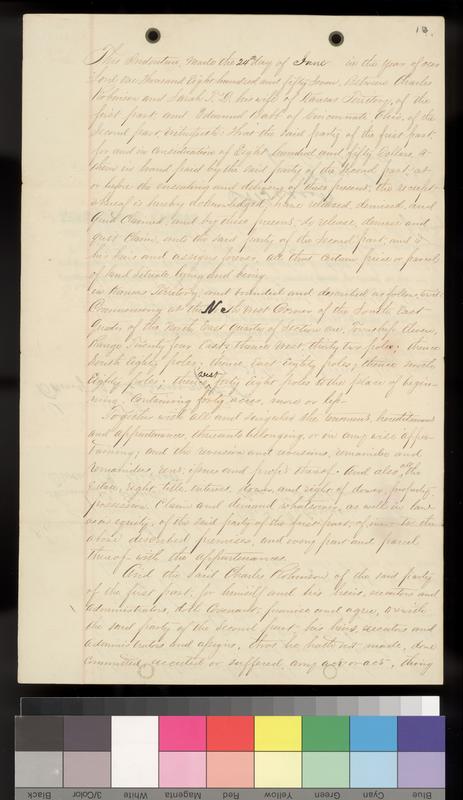 18.
This Indenture, Made the 24th day of June in the year of our
Lord One thousand Eight hundred and fifty Seven, Between Charles
Robinson and Sarah T. D. his wife of Kansas Territory, of the
first part, and Edmund Babb of Cincinnati Ohio, of the
Second part Witnesseth: That the Said party of the first part,
for and in consideration of Eight hundred and fifty Dollars, to
them in hand paid by the Said party of the Second part, at
or before the ensealing and delivery of these presents, the receipt
whereof is hereby acknowledged, have released, demised, and
Quit Claimed, and by these presents, do release, demise and
quit Claim, unto the Said party of the Second part, and to
his heirs and assigns forever, all that certain piece or parcel
of land Situate lying and being
in Kansas Territory, and bounded and described as follows, to wit:
Commencing at the N E West Corner of the South East
Quarter of the North East quarter of Section one, Township
Range Twenty four East, thence West, thirty two poles; thence
South Eighty poles; thence East Eighty poles; thence North
Eighty poles; thence West forty Eight poles to the place of begin-
ning. Containing forty acres, more or less.
Together with all and Singular the tenements, hereditaments
and appurtenances, thereunto belonging, or in any wise apper-
taining; and the reversion and reversions, remainder and
remainders, rents, issues and profits thereof. And also all the
Estate, right, title, interest, dower, and right of dower, property,
possession, Claim and demand whatsoever, as well in law
as in equity, of the Said party of the first part, of, in or to the
above described premises and every part and parcel
thereof with the appurtenances.
And the Said Charles Robinson of the said party
of the first part, for himself and his heirs, executors and
administrators, doth Covenant, promise and agree, to with
the said party of the Second part, his heirs, executors and
administrators and assigns, that he hath not made, done
Committed, executed or suffered any act or acts, thing
Black
3/Color
White
Magenta
Red
Yellow
Green
Cyan
Blue